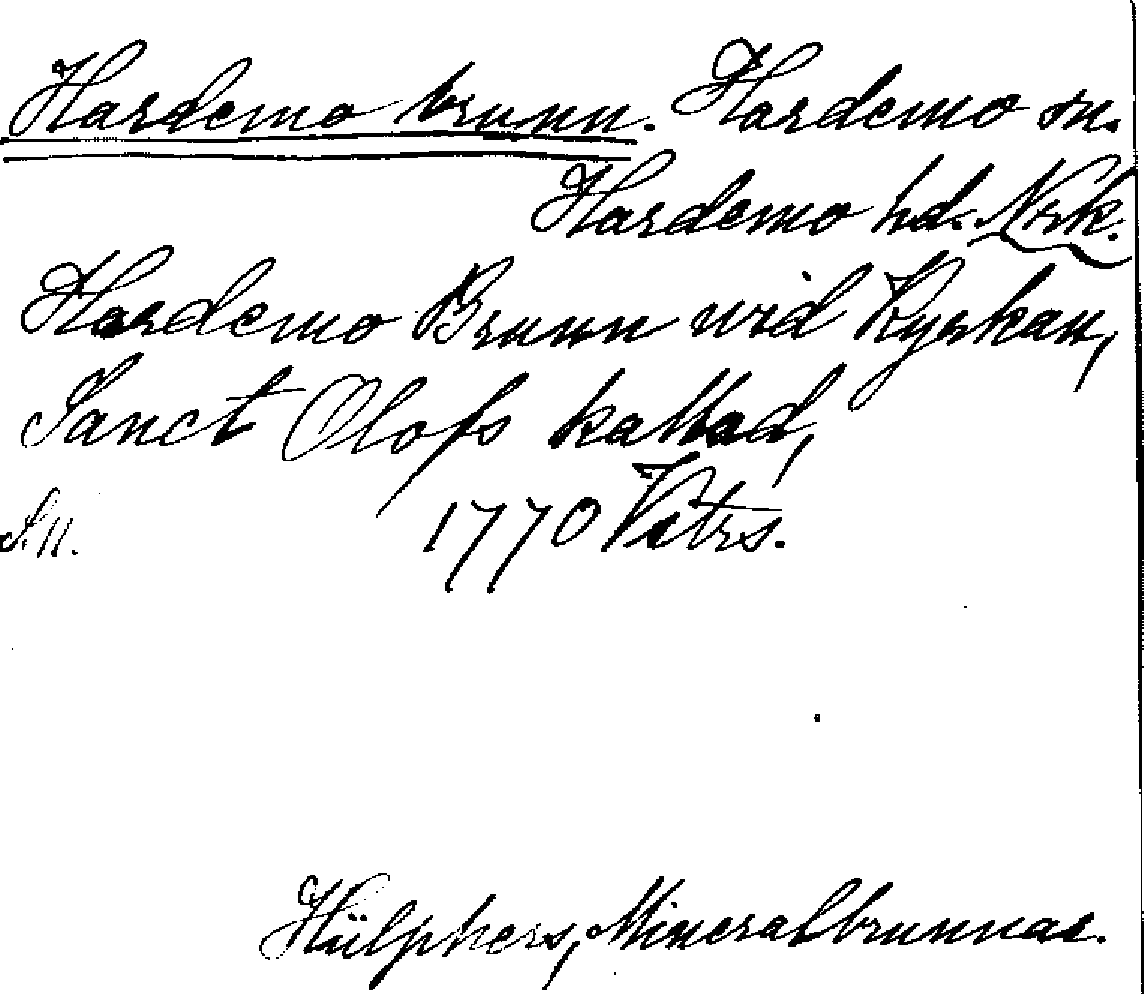 Hardemo brunn. Hardemo sn.
Hardemo hd. Nrk.
Hardemo Brunn wid Kyrkan,
Sanct Olofs kallad,
S.N. 1770 Vstrs.
Hülphers, Mineralbrunnar.